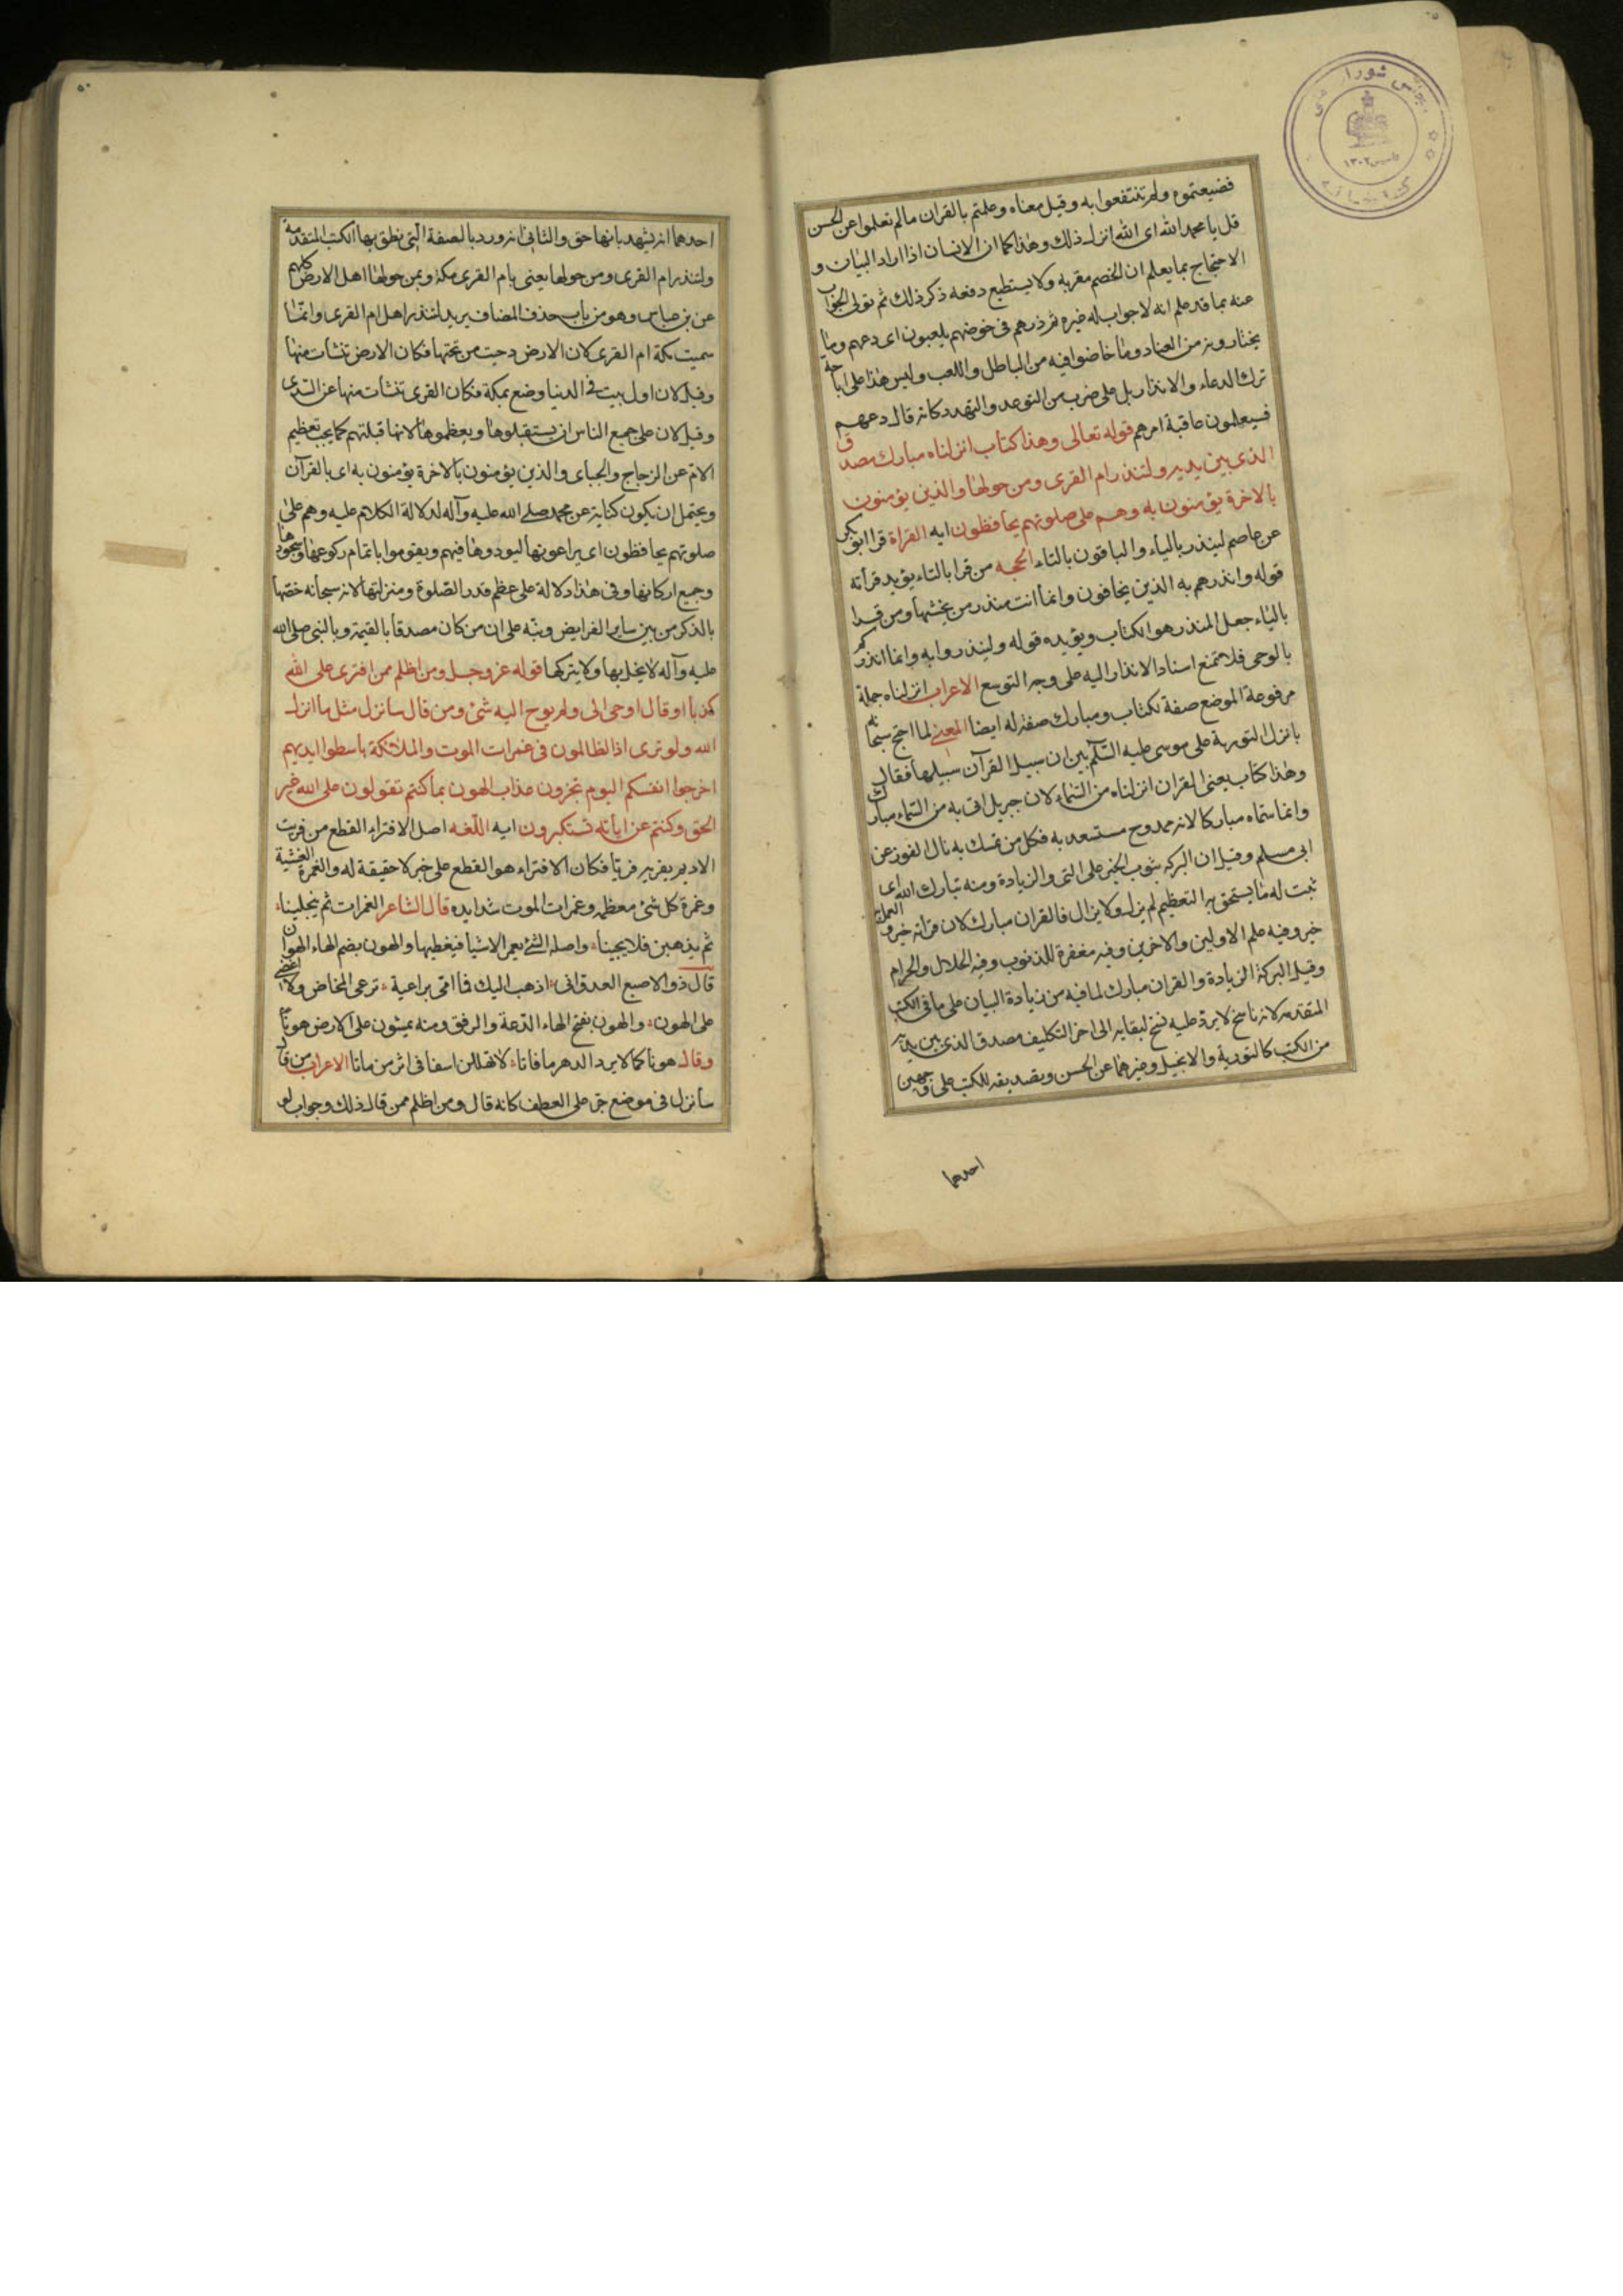 فضيعتموه ولم تنتفعوا به وقيل معناه وعلمتم بالقران مالم تعلموا عن الحسن
قل يا محمد الله اى الله انزل ذلك وهذا كما ان الانسان اذا اراد البيان و
الاحتجاج بما يعلم ان الخصم مقربه ولا يستطيع دفعه ذكر ذلك ثم تولى الجواب
عنه بما قد علم انه لا جواب له غيره ثم ذرهم فى خوضهم يلعبون اى دعهم وما
يختارونه من العناد وما خاضوا فيه من الباطل واللعب وليس هذا على اباحة
ترك الدعاء والانذار بل على ضرب من التوعد والتهدد كانه قال دعهم
فسيعلمون عاقبة امرهم قوله تعالى وهذا كتاب انزلناه مبارك مصدق
الذى بين يديه ولتنذر ام القرى ومن حولها والذين يؤمنون
بالاخرة يؤمنون به وهم على صلوتهم يحافظون ايه القراة قرا ابوبكر
عن عاصم لينذر بالياء والباقون بالتاء الحجه من قرا بالتاء يؤيد قرأته
قوله وانذرهم به الذين يخافون وانما انت منذر من يخشيها ومن قرا
بالياء جعل المنذر هو الكتاب ويؤيده قوله ولينذروا به وانما انذركم
بالوحى فلا يمتنع اسناد الانذار اليه على وجه التوسع الاعراب انزلناه جملة
مرفوعة الموضع صفة لكتاب ومبارك صفة له ايضا المعنى لما احتج سبحانه
بانزل التورية على موسى عليه السلم بين ان سبيل القرآن سبيلها فقال
وهذا كتاب يعنى القران انزلناه من السماء لان جبريل اتى به من السماء مبارك
وانما سماه مباركا لانه ممدوح مستسعد به فكل من تمسك به نال الفوز عن
ابى مسلم وقيل ان البركه ثبوت الخير على النمى والزيادة ومنه تبارك الله اى
ثبت له ما يستحق به التعظيم لم يزل ولا يزال فالقران مبارك لان قرائته خير والعمل به
خير وفيه علم الاولين والاخرين وفيه مغفرة للذنوب وفيه الحلال والحرام
وقيل البركة الزيادة والقران مبارك لما فيه من زيادة البيان على ما فى الكتب
المتقدمه لانه ناسخ لا يرد عليه نسخ لبقايه الى اخر التكليف مصدق الذى بين يديه
من الكتب كالتورية والانجيل وغيرهما عن الحسن وتصديقه للكتب على وجهين
احدهما
احدهما انه يشهد بانها حق والثانى انه ورد بالصفة التى نطق بها الكتب المتقدمة
ولتنذر ام القرى ومن حولها يعنى بام القرى مكة ومن حولها اهل الارض كلهم
عن بن عباس وهو من باب حذف المضاف يريد لتنذر اهل ام القرى وانما
سميت مكة ام القرى لان الارض دحيت من تحتها فكان الارض تنشأت منها
وقيل لان اول بيت فى الدنيا وضع بمكة فكان القرى تنشات منها عن السدى
وقيل لان على جميع الناس ان يستقبلوها ويعظموها لانها قبلتهم كما يجب تعظيم
الام عن الزجاج والجبائى والذين يؤمنون بالاخرة يؤمنون به اى بالقرآن
ويحتمل ان يكون كناية عن محمد صلى الله عليه وآله لدلالة الكلام عليه وهم على
صلوتهم يحافظون اى يراعونها ليودوها فيهم ويقوموا باتمام ركوعها وسجودها
وجميع اركانها وفى هذا دلالة على عظم قدر الصلوة ومنزلتها لانه سبحانه خصها
بالذكر من بين ساير الفرايض ونبه على ان من كان مصدقا بالقيمة وبالنبى صلى الله
عليه وآله لا يخل بها ولا يتركها قوله عز وجل ومن اظلم ممن افترى على الله
كذبا او قال اوحى الى ولم يوح اليه شئ ومن قال سانزل مثل ما انزل
الله ولو ترى اذ الظالمون فى غمرات الموت والملائكة باسطوا ايديهم
اخرجوا انفسكم اليوم تجزون عذاب الهون بما كنتم تقولون على الله غير
الحق وكنتم عن اياته تستكبرون ايه اللغه اصل الافتراء القطع من فريت
الاديم يفريه فريا فكان الافتراء هو القطع على خبر لا حقيقة له والغمرة الغشية
وغمرة كل شئ معظمه وغمرات الموت شدايده قال الشاعر الغمرات ثم ينجلينا
ثم يذهبن فلا يجينا واصله الشئ يعم الاشيا فيغطيها والهون بضم الهاء الهوان
قال ذو الاصبع العدوانى اذهب اليك فما امى براعية ترعى المخاض ولا اغضى
على الهون والهون بفتح الهاء الدعة والرفق ومنه يمشون على الارض هونا
وقال هونا كما لا يرد الدهر ما فاتا لا تهلكن اسفا فى اثر من ماتا الاعراب من قال
سأنزل فى موضع جر على العطف كانه قال ومن اظلم ممن قال ذلك وجواب لو